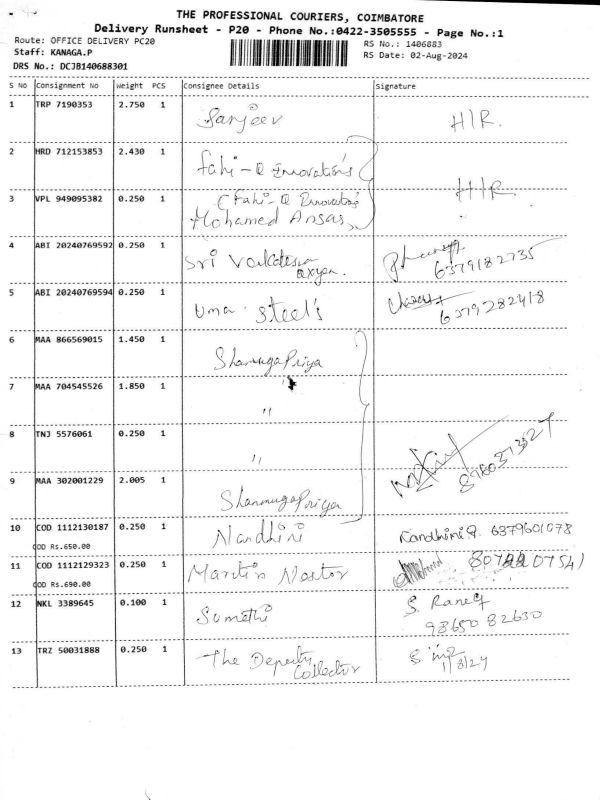 THE PROFESSIONAL COURIERS, COIMBATORE
Delivery Runsheet - P20 - Phone No.:0422-3505555 - Page No.:1
Route: OFFICE DELIVERY PC20
RS No.: 1406883
Staff: KANAGA.P
RS Date: 02-Aug-2024
DRS No.: DCJB140688301
S No Consignment No Weight PCS Consignee Details Signature
1 TRP 7190353 2.750 1 Sanjeev H/R.
2 HRD 712153853 2.430 1 Fahi-Q Innovation's
3 VPL 949095382 0.250 1 (Fahi-Q Innovation's H/R.
Mohamed Ansar
4 ABI 20240769592 0.250 1 Sri 6379182735
5 ABI 20240769594 0.250 1 Uma Steel's 6379282418
6 MAA 866569015 1.450 1 ShanmugaPriya
7 MAA 704545526 1.850 1 "
8 TNJ 5576061 0.250 1 "
9 MAA 302001229 2.005 1 ShanmugaPriya
10 COD 1112130187 0.250 1 Nandhini Nandhini 6379601078
COD Rs.650.00
11 COD 1112129323 0.250 1 Martin Nestor
COD Rs.690.00
12 NKL 3389645 0.100 1 Sumathi S.
98650 82630
13 TRZ 50031888 0.250 1 The Deputy
Collector 1/8/24